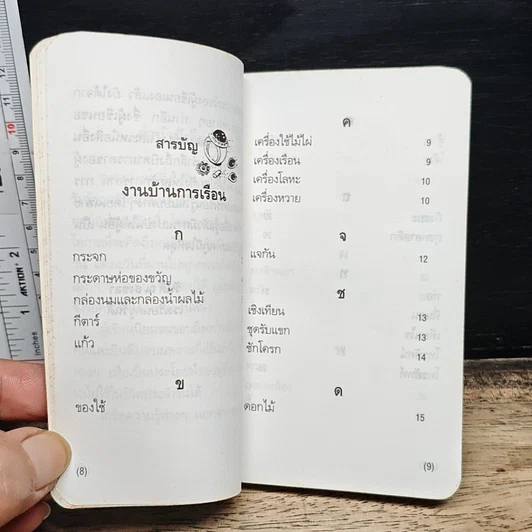 สารบัญ
งานบ้านการเรือน
ก
กระจก
กระดาษห่อของขวัญ
กล่องนมและกล่องน้ำผลไม้
กีตาร์
แก้ว
ข
ของใช้
(8)
ค
เครื่องใช้ไม้ไผ่ 9
เครื่องเรือน 9
เครื่องโลหะ 10
เครื่องหวาย 10
จ
แจกัน 12
ช
เชิงเทียน 13
ชุดรับแขก 13
ชักโครก 14
ด
ดอกไม้ 15
(9)
1
2
Inches
AKTION